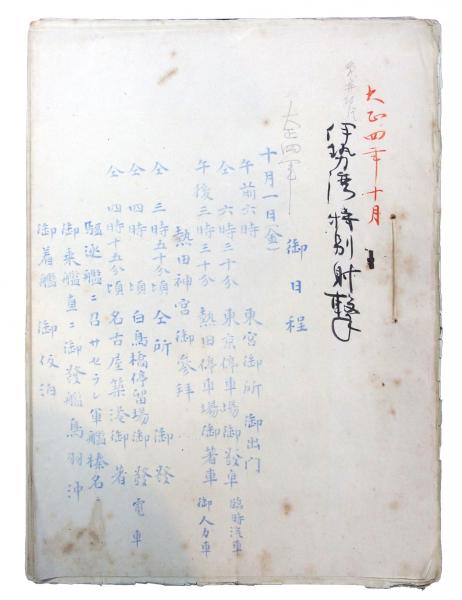 大正四年十月
伊勢湾特別射撃
大正四年
御日程
十月一日(金)
午前六時 東宮御所 御出門
仝 六時三十分 東京停車場御発車 臨時汽車
午後三時三十分 熱田停車場御著車 御人力車
熱田神宮御参拜
仝 三時五十分頃 仝所 御発
仝 四時 頃 白鳥橋停留場御発 電車
仝 四時十五分頃 名古屋築港御著
駆逐艦ニ召サセラレ軍艦榛名ニ
御乗艦直ニ御発艦鳥羽沖
御着艦 御仮泊